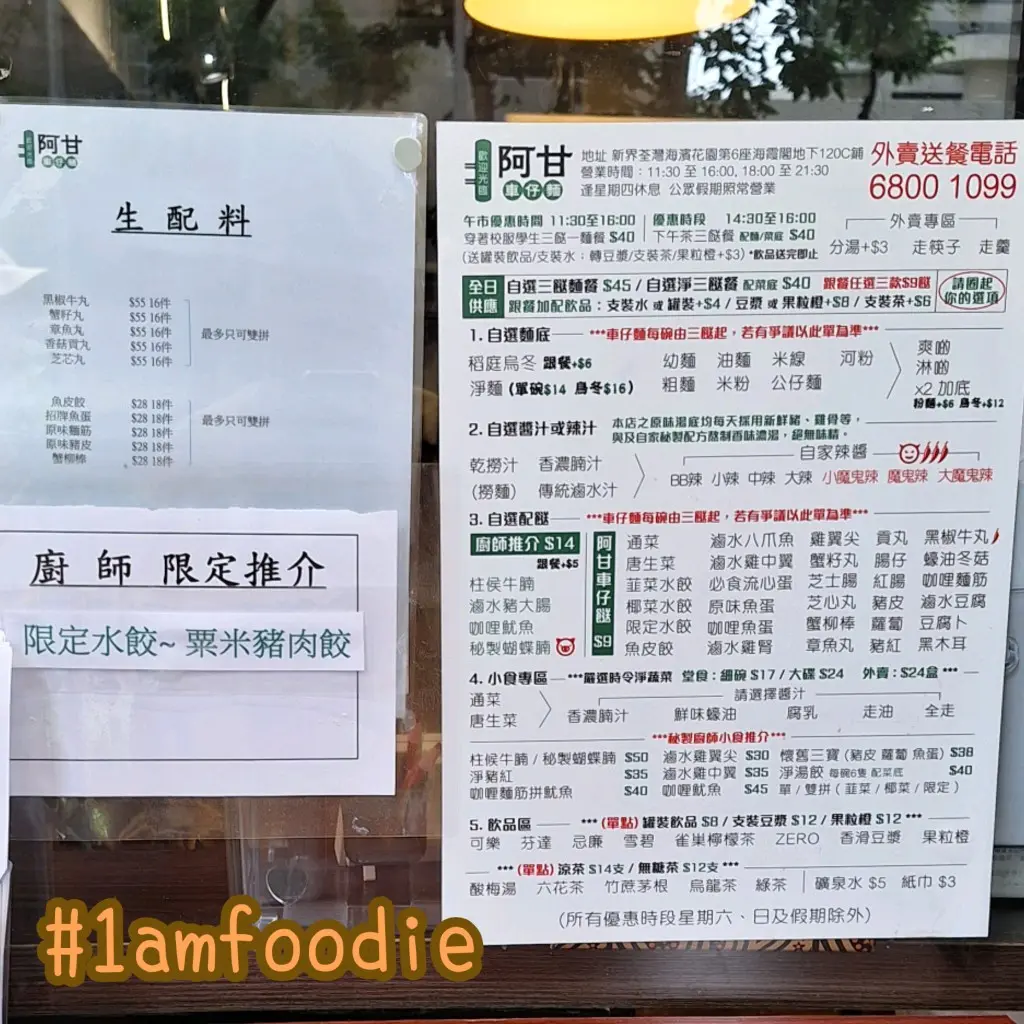 阿甘
車仔麵
生配料
黑椒牛丸 $55 16件
蟹籽丸 $55 16件
章魚丸 $55 16件
香菇貢丸 $55 16件
芝芯丸 $55 16件
最多只可雙拼
魚皮餃 $28 18件
招牌魚蛋 $28 18件
原味麵筋 $28 18件
原味豬皮 $28 18件
蟹柳棒 $28 18件
最多只可雙拼
廚師 限定推介
限定水餃~粟米豬肉餃
歡迎光臨
阿甘
車仔麵
地址 新界荃灣海濱花園第6座海霞閣地下120C鋪
營業時間：11:30 至 16:00, 18:00 至 21:30
逢星期四休息 公眾假期照常營業
外賣送餐電話
6800 1099
午市優惠時間 11:30至16:00 優惠時段 14:30至16:00
穿著校服學生三餸一麵餐 $40 下午茶三餸餐 配麵/菜底 $40
(送罐裝飲品/支裝水；轉豆漿/支裝茶/果粒橙+$3) *飲品送完即止
外賣專區
分湯+$3 走筷子 走羹
全日供應
自選三餸麵餐 $45 / 自選淨三餸餐 配菜底 $40 跟餐任選三款$9餸
跟餐加配飲品：支裝水 或 罐裝+$4 / 豆漿 或 果粒橙+$8 / 支裝茶+$6
請圈起你的選項
1. 自選麵底 ***車仔麵每碗由三餸起，若有爭議以此單為準***
稻庭烏冬 跟餐+$6 幼麵 油麵 米線 河粉
淨麵 (單碗$14 烏冬$16) 粗麵 米粉 公仔麵
爽啲
淋啲
x2 加底
粉麵+$6 烏冬+$12
2. 自選醬汁或辣汁 本店之原味湯底均每天採用新鮮豬、雞骨等，
與及自家秘製配方熬制香味濃湯，絕無味精。
乾撈汁 香濃腩汁
(撈麵) 傳統滷水汁
自家辣醬
BB辣 小辣 中辣 大辣 小魔鬼辣 魔鬼辣 大魔鬼辣
3. 自選配餸 ***車仔麵每碗由三餸起，若有爭議以此單為準***
廚師推介 $14
跟餐+$5
柱侯牛腩
滷水豬大腸
咖哩魷魚
秘製蝴蝶腩
阿甘車仔餸 $9
通菜 滷水八爪魚 雞翼尖 貢丸 黑椒牛丸
唐生菜 滷水雞中翼 蟹籽丸 腸仔 蠔油冬菇
韮菜水餃 必食流心蛋 芝士腸 紅腸 咖哩麵筋
椰菜水餃 原味魚蛋 芝心丸 豬皮 滷水豆腐
限定水餃 咖哩魚蛋 蟹柳棒 蘿蔔 豆腐卜
魚皮餃 滷水雞腎 章魚丸 豬紅 黑木耳
4. 小食專區 ***嚴選時令淨蔬菜 堂食：細碗 $17 / 大碟 $24 外賣：$24盒 ***
通菜
唐生菜
請選擇醬汁
香濃腩汁 鮮味蠔油 腐乳 走油 全走
***秘製廚師小食推介***
柱侯牛腩 / 秘製蝴蝶腩 $50 滷水雞翼尖 $30 懷舊三寶 (豬皮 蘿蔔 魚蛋) $38
淨豬紅 $35 滷水雞中翼 $35 淨湯餃 每碗6隻 配菜底 $40
咖哩麵筋拼魷魚 $40 咖哩魷魚 $45 單 / 雙拼 ( 韮菜 / 椰菜 / 限定 )
5. 飲品區 *** (單點) 罐裝飲品 $8 / 支裝豆漿 $12 / 果粒橙 $12 ***
可樂 芬達 忌廉 雪碧 雀巢檸檬茶 ZERO 香滑豆漿 果粒橙
*** (單點) 涼茶 $14支 / 無糖茶 $12支 ***
酸梅湯 六花茶 竹蔗茅根 烏龍茶 綠茶 礦泉水 $5 紙巾 $3
(所有優惠時段星期六、日及假期除外)
#1amfoodie